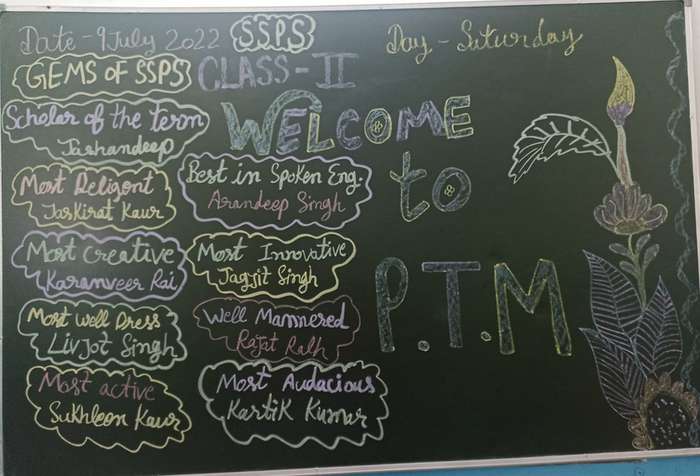 Date - 9 July 2022
SSPS
Day - Saturday
GEMS OF SSPS
CLASS - II
WELCOME
to
P.T.M
Scholar of the term
Jashandeep
Most Deligent
Jaskirat Kaur
Best in Spoken Eng.
Arandeep Singh
Most Creative
Karamveer Rai
Most Innovative
Jagjit Singh
Most Well Dress
Livjot Singh
Well Mannered
Rajat Ralh
Most active
Sukhleen Kaur
Most Audacious
Kartik Kumar